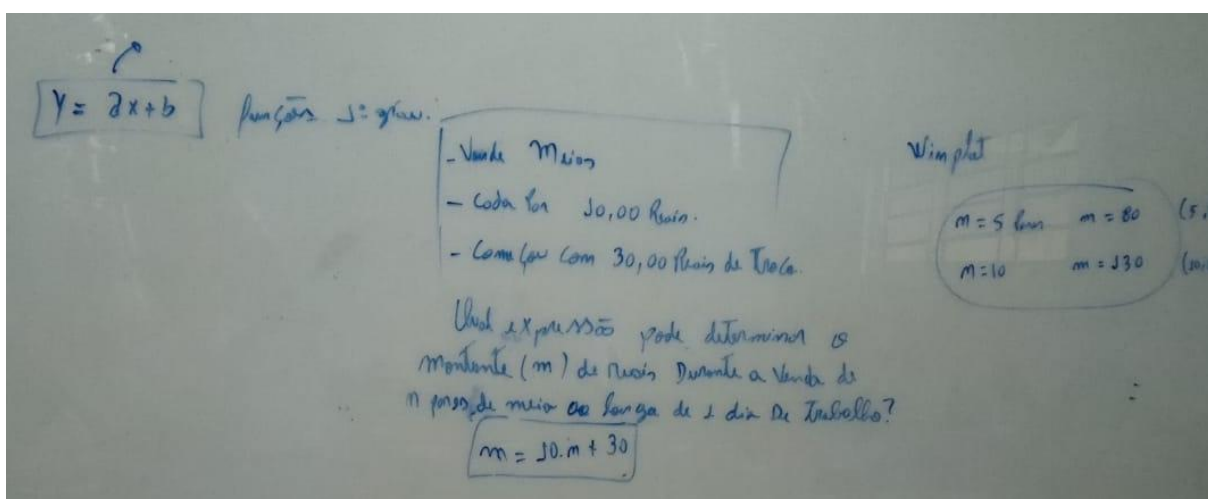 y = ax + b
funções 1º grau.
- Vende Meias
- Cada Par 10,00 Reais.
- Começou com 30,00 Reais de Troco.
Qual expressão pode determinar o
montante (m) de reais Durante a Venda de
n pares de meia ao longo de 1 dia De Trabalho?
m = 10.n + 30
Winplot
n = 5 pares m = 80 (5,
n = 10 m = 130 (10,